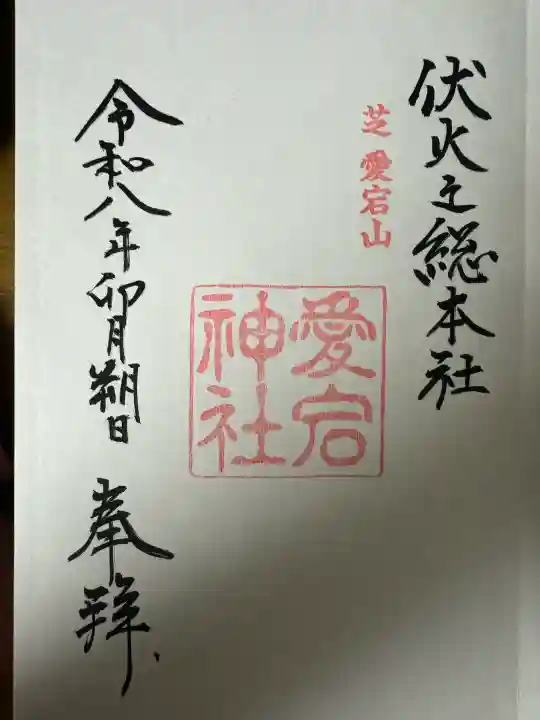 伏火之総本社
芝愛宕山
愛宕
神社
令和八年卯月朔日 奉拝